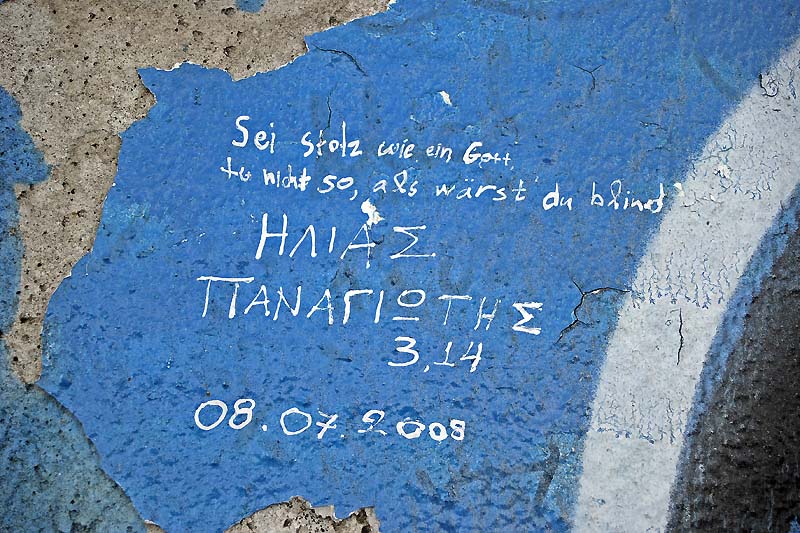 Sei stolz wie ein Gott,
tu nicht so, als wärst du blind!
ΗΛΙΑΣ
ΠΑΝΑΓΙΩΤΗΣ
3,14
08.07.2008